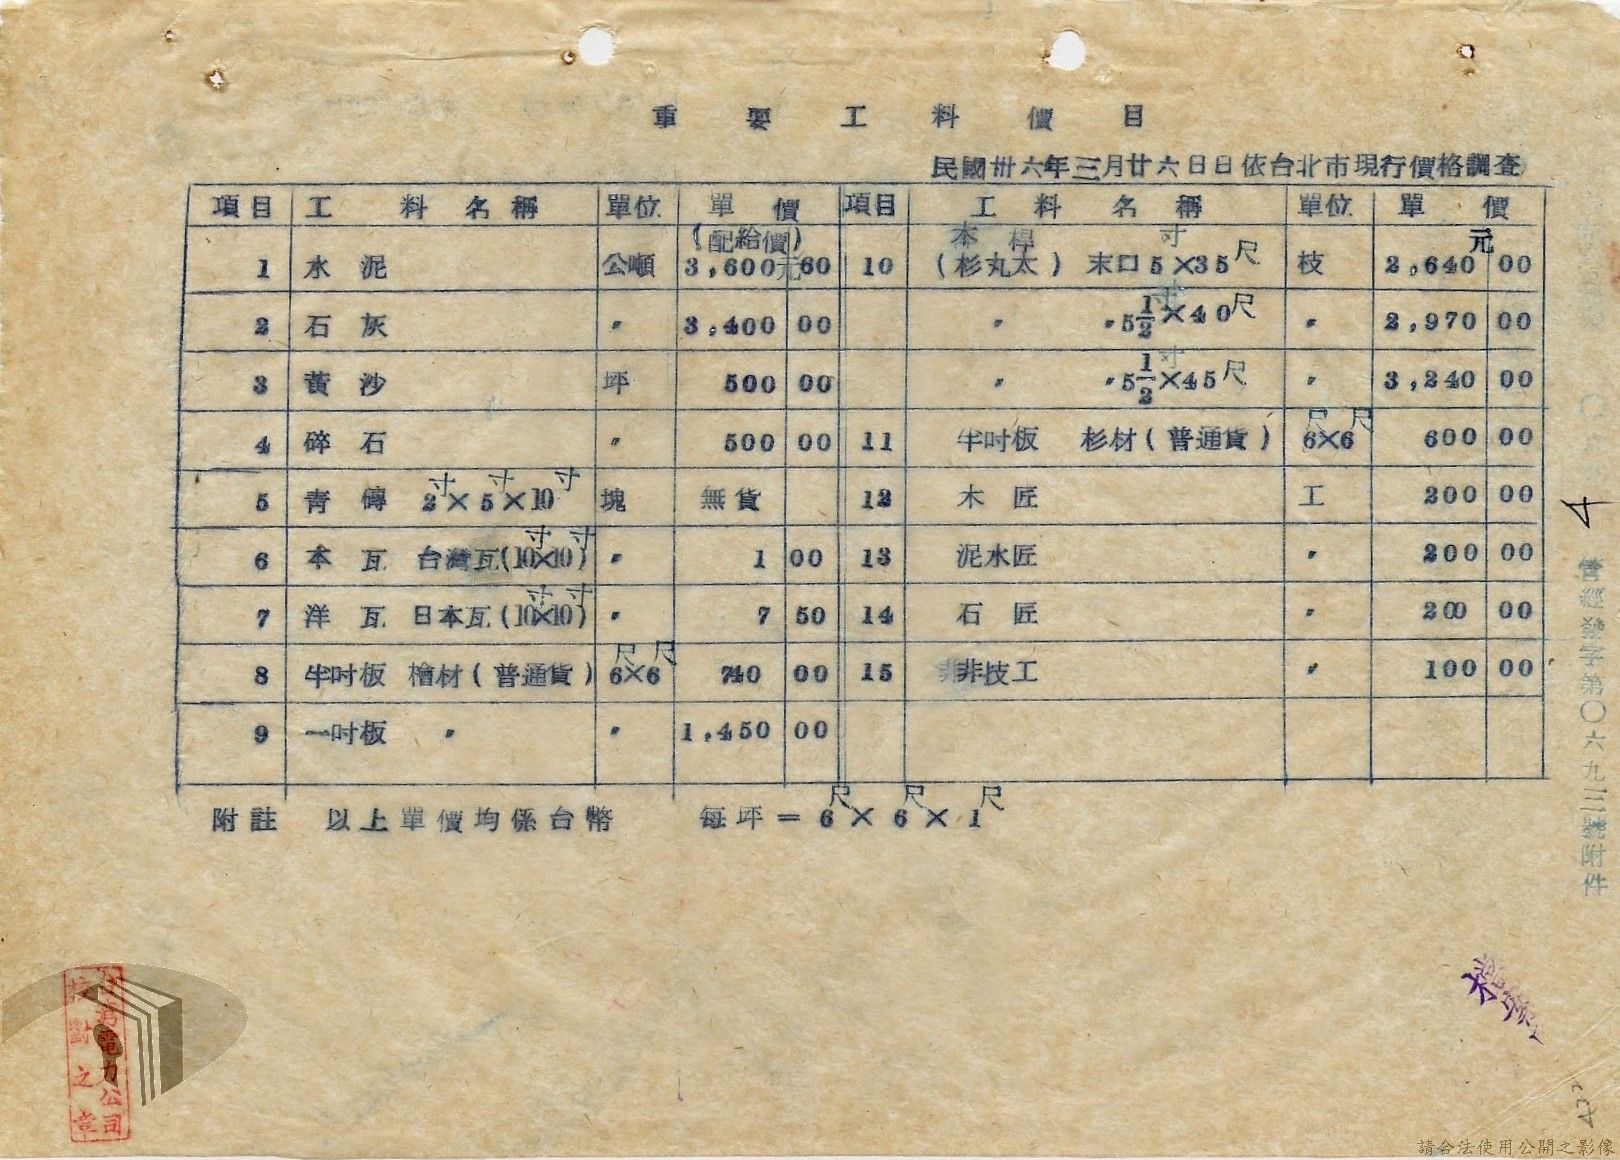 重要工料價目
民國卅六年三月廿六日日依台北市現行價格調查
項目 工料名稱 單位 單價 項目 工料名稱 單位 單價
1 水泥 公噸 (配給價) 3,600元60 10 本桿 (杉丸太) 末口5寸×35尺 枝 2,640元00
2 石灰 〃 3,400 00 〃 〃5½寸×40尺 〃 2,970 00
3 黃沙 坪 500 00 〃 〃5½寸×45尺 〃 3,240 00
4 碎石 〃 500 00 11 半吋板 杉材(普通貨) 6尺×6尺 600 00
5 青磚 2寸×5寸×10寸 塊 無貨 12 木匠 工 200 00
6 本瓦 台灣瓦(10寸×10寸) 〃 1 00 13 泥水匠 〃 200 00
7 洋瓦 日本瓦(10寸×10寸) 〃 7 50 14 石匠 〃 200 00
8 半吋板 檜材(普通貨) 6尺×6尺 740 00 15 非技工 〃 100 00
9 一吋板 〃 〃 1,450 00
附註 以上單價均係台幣 每坪=6尺×6尺×1尺
4
字第〇六九三號附件
台灣電力公司
校對之章
請合法使用公開之影像